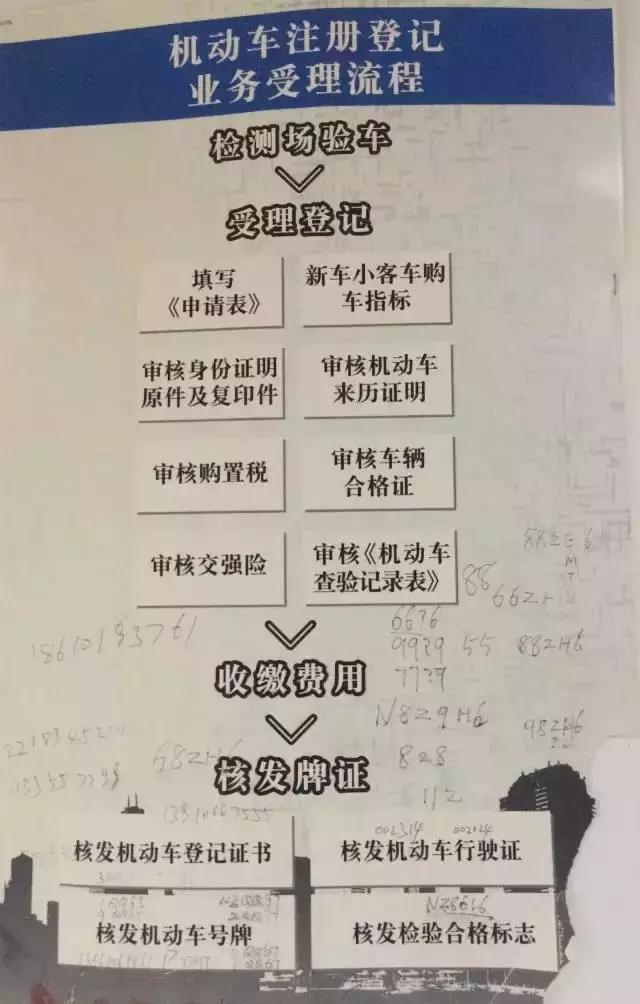 机动车注册登记
业务受理流程
检测场验车
受理登记
填写
《申请表》
新车小客车购
车指标
审核身份证明
原件及复印件
审核机动车
来历证明
审核购置税
审核车辆
合格证
审核交强险
审核《机动车
查验记录表》
88
66ZH
18610193761
66?6
99?9
55
88ZH6
77?9
收缴费用
N8Z9H6
98ZH6
68ZH6
828
核发牌证
112
002314
核发机动车登记证书
核发机动车行驶证
NZ8616
核发机动车号牌
核发检验合格标志